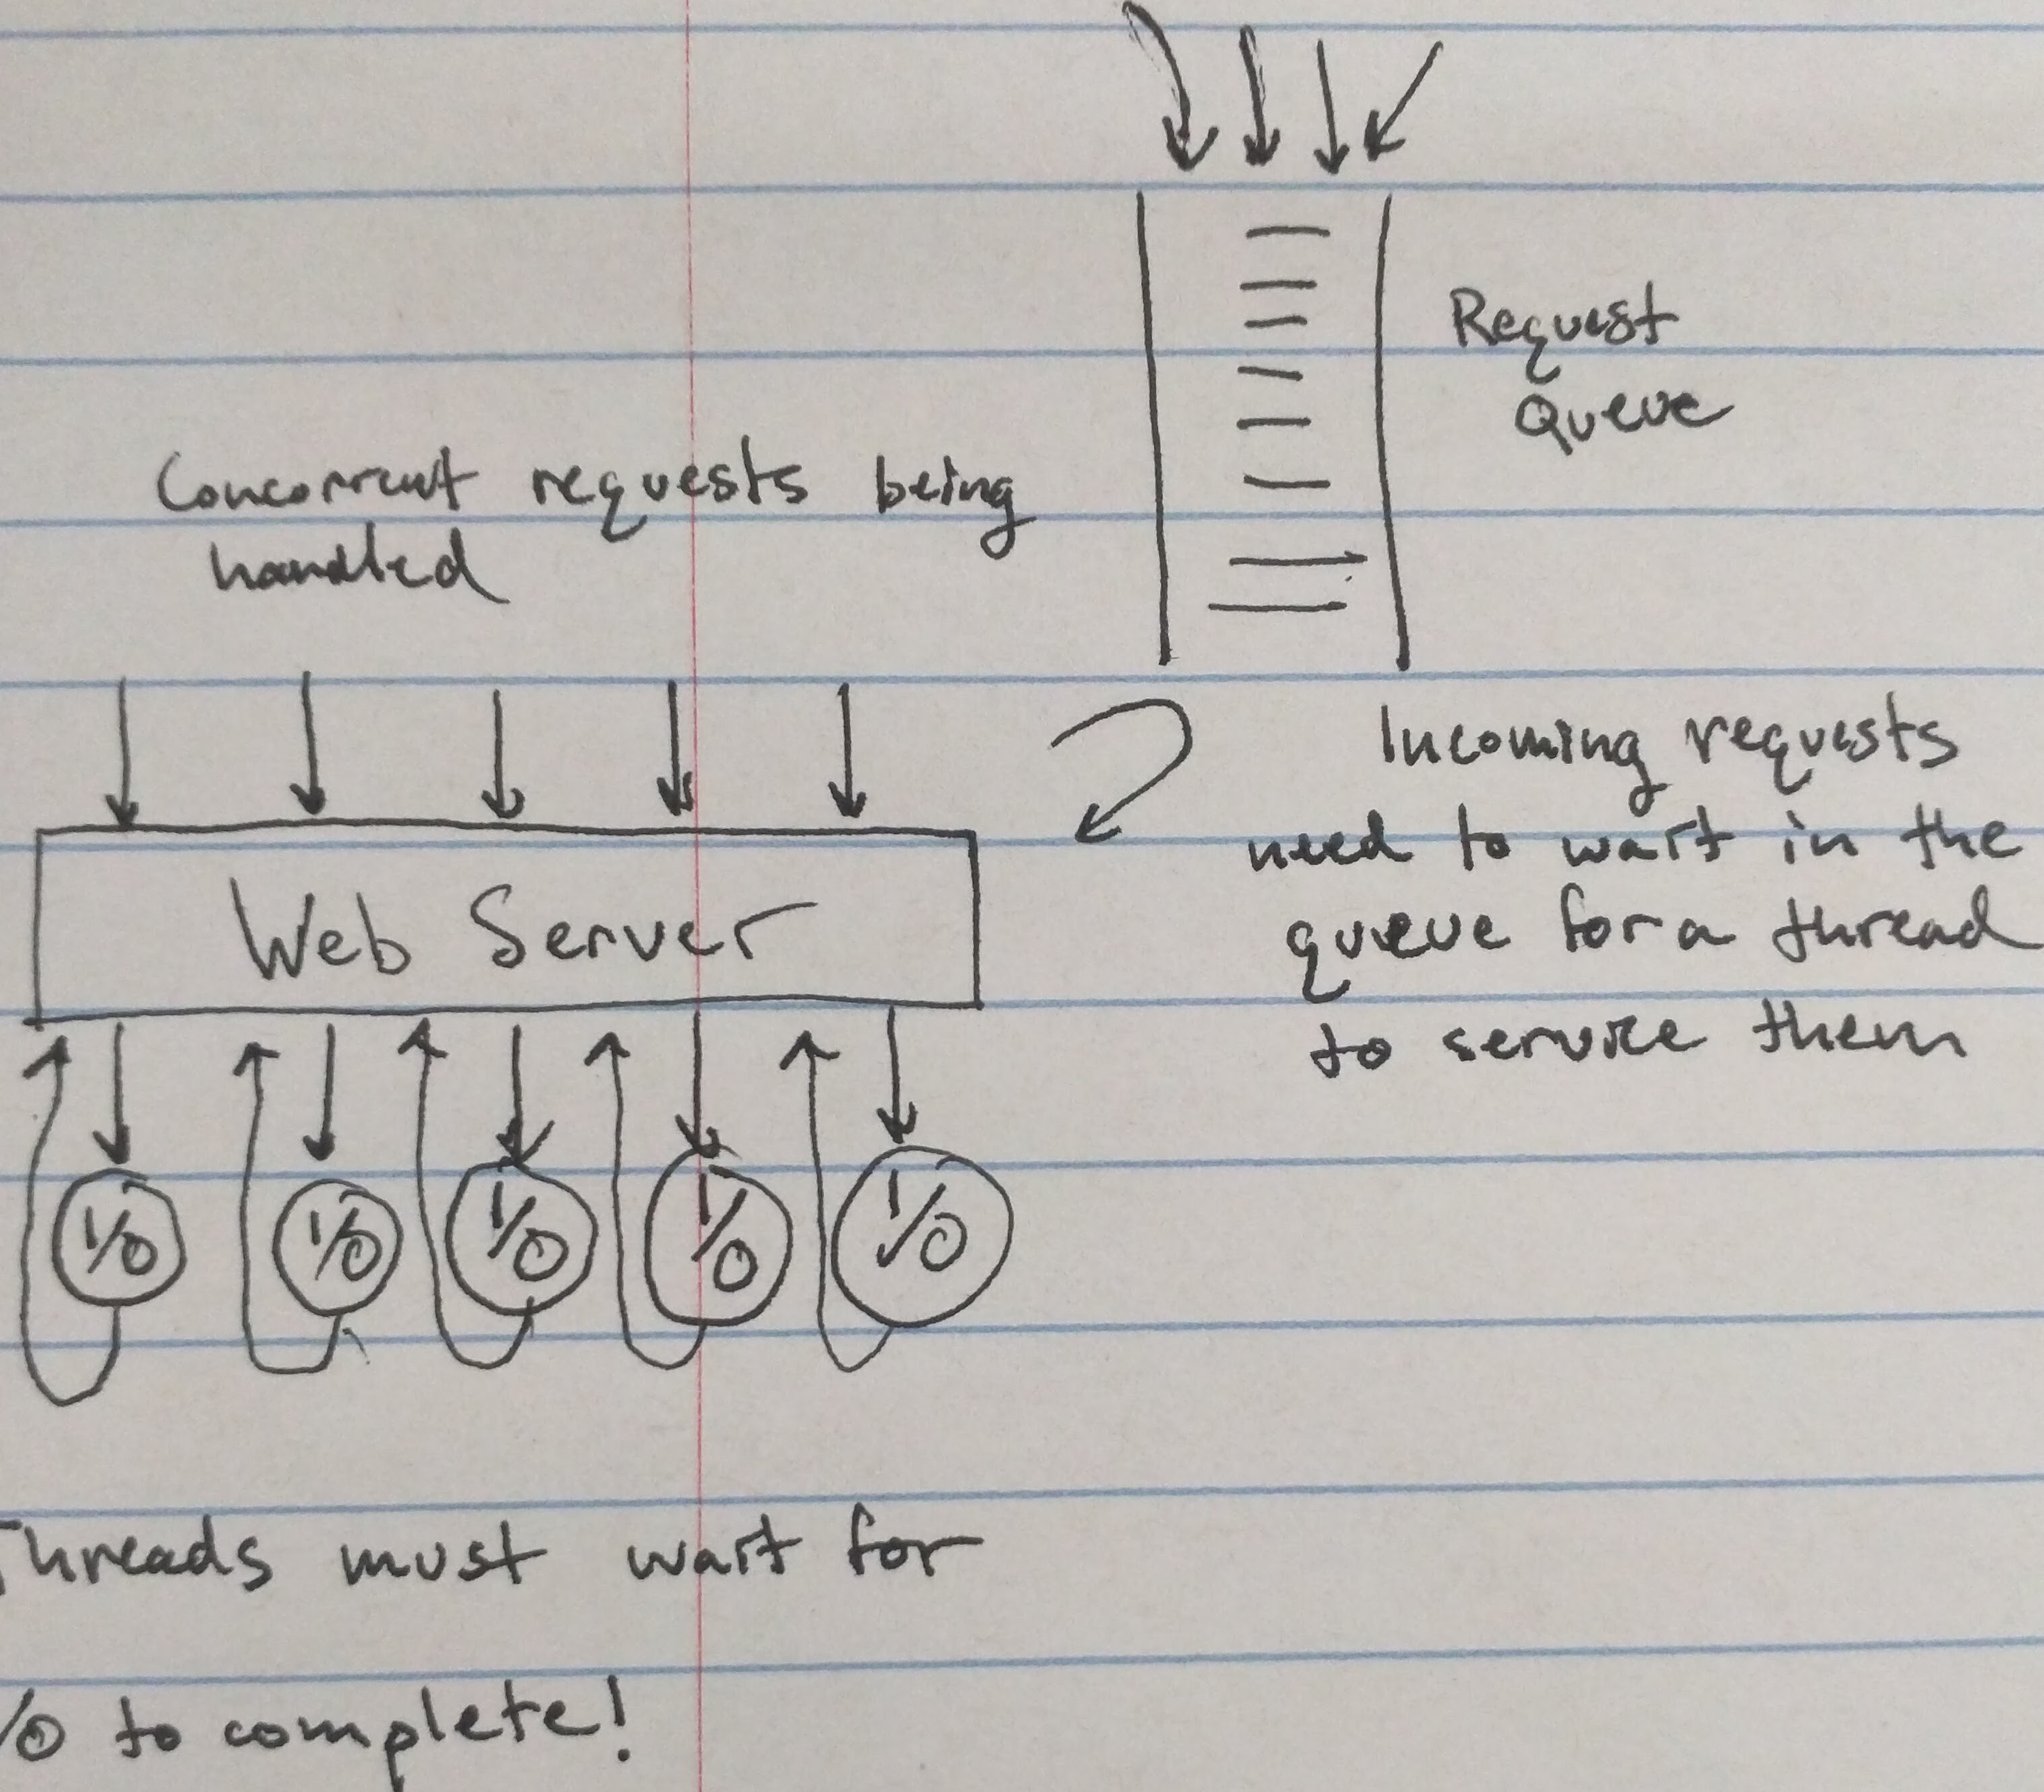 Request
Queue
Concurrent requests being
handled
Incoming requests
need to wait in the
queue for a thread
to service them
Web Server
I/O I/O I/O I/O I/O
Threads must wait for
/O to complete!